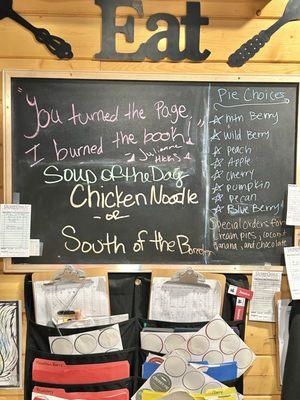 Eat
"You turned the Page,
I burned the book!"
~Julianne
Hicks~
Soup of the Day
Chicken Noodle
-or-
South of the Border
Pie Choices
☆ Mtn Berry
☆ Wild Berry
☆ Peach
☆ Apple
☆ Cherry
☆ Pumpkin
☆ Pecan
☆ Blue Berry
Special Orders for
Cream pies, Coconut
Banana, and Chocolate